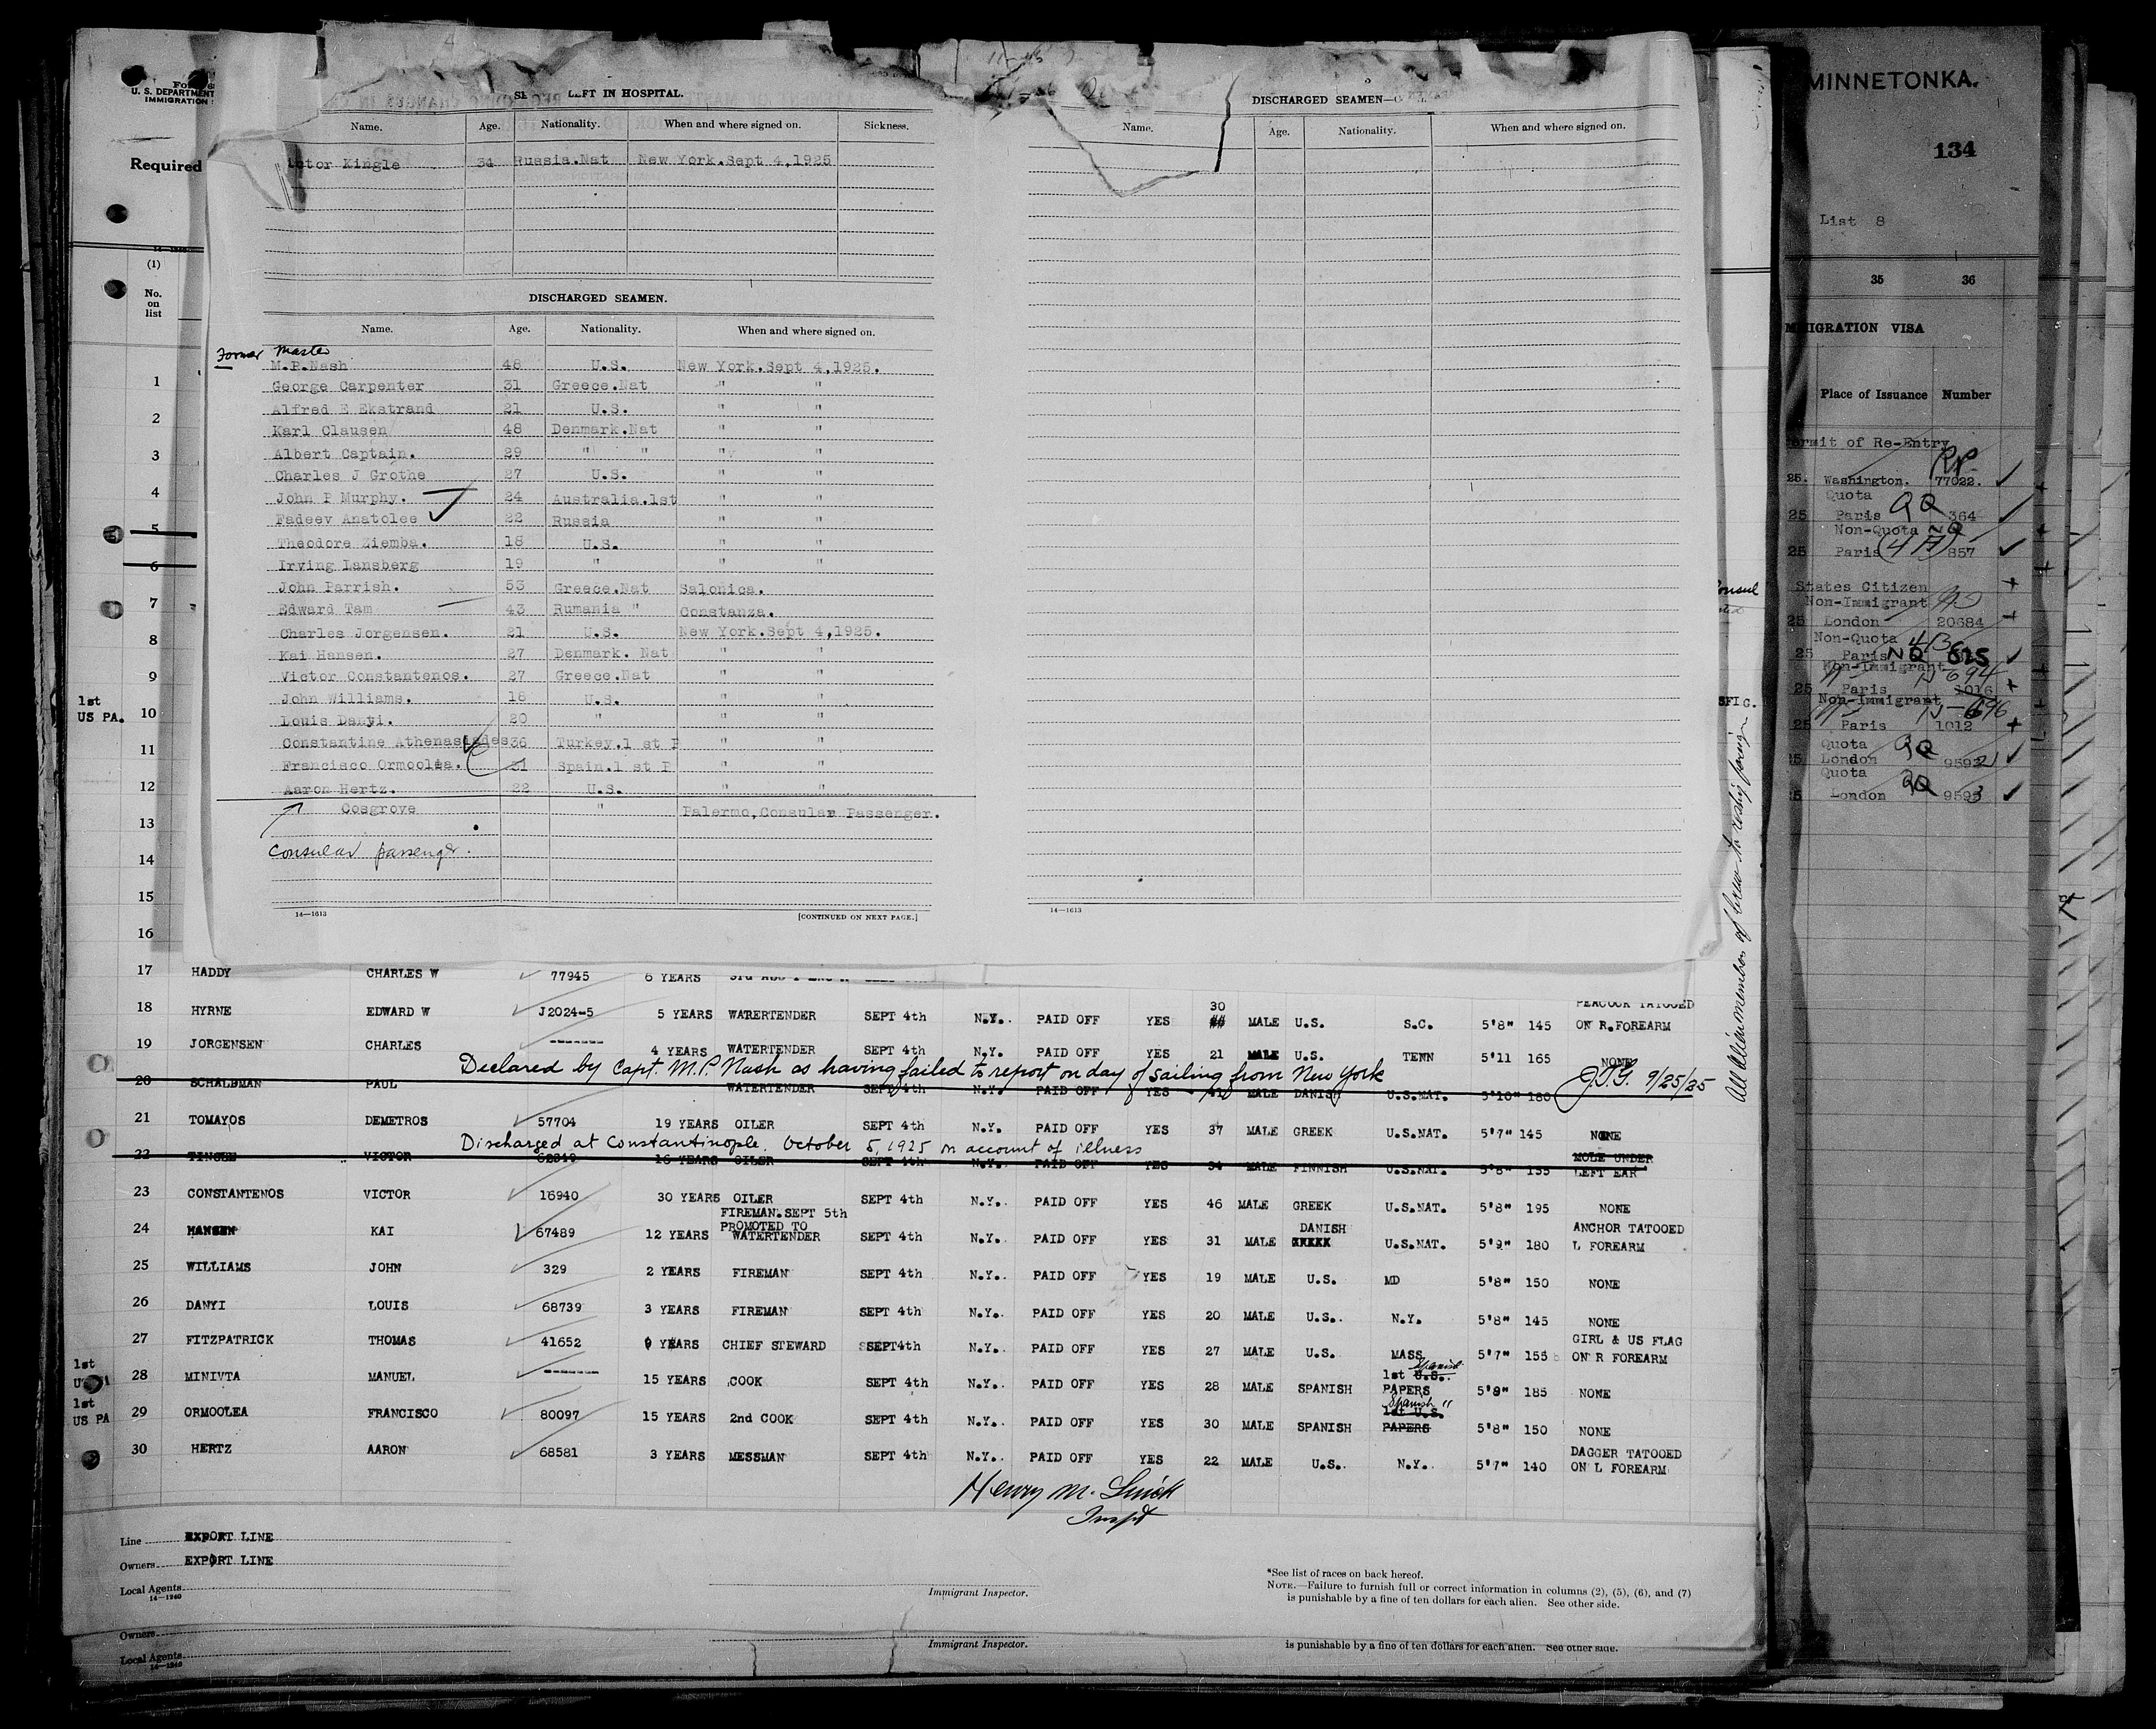 For
U. S. DEPARTMENT
IMMIGRATION
Required
(1)
No.
on
list
1
2
3
4
5
6
7
8
9
1st
US PA. 10
11
12
13
14
15
16
LEFT IN HOSPITAL.
Name. Age. Nationality. When and where signed on. Sickness.
ctor Kingle 34 Russia.Nat New York.Sept 4,1925
DISCHARGED SEAMEN.
Name. Age. Nationality. When and where signed on.
Former Master
M.P.Nash 48 U.S. New York.Sept 4,1925.
George Carpenter 31 Greece.Nat " "
Alfred E Ekstrand 21 U.S. " "
Karl Clausen 48 Denmark.Nat " "
Albert Captain. 29 " " " "
Charles J Grothe 27 U.S. " "
John P Murphy. 24 Australia.1st " "
Fadeev Anatolee 22 Russia " "
Theodore Ziemba. 18 U.S. " "
Irving Lansberg 19 " " "
John Parrish. 53 Greece.Nat Salonica.
Edward Tam 43 Rumania " Constanza.
Charles Jorgensen. 21 U.S. New York.Sept 4,1925.
Kai Hansen. 27 Denmark. Nat " "
Victor Constantenos. 27 Greece.Nat " "
John Williams. 18 U.S. " "
Louis Danyi. 20 " " "
Constantine Athenasiades 36 Turkey.1 st P " "
Francisco Ormoolea. 31 Spain.1 st P " "
Aaron Hertz. 22 U.S. " "
Cosgrove " Palermo,Consular Passenger.
Consular passenger.
14—1613 [CONTINUED ON NEXT PAGE.]
DISCHARGED SEAMEN—
Name. Age. Nationality. When and where signed on.
14—1613
All Alien members of crew to reship foreign
MINNETONKA.
134
List 8
35 36
IGRATION VISA
Place of Issuance Number
ermit of Re-Entry
RP
25. Washington. 77022.
Quota QQ
25 Paris 364
Non-Quota NQ
25 Paris (4 A) 857
States Citizen
Non-Immigrant
25 London 20684
Non-Quota 4B
25 Paris NQ 615
Non-Immigrant N-694
25 Paris 1016
Non-Immigrant N-696
25 Paris 1012
Quota QQ
25 London 9592
Quota QQ
25 London 9593
17 HADDY CHARLES W 77945 6 YEARS
18 HYRNE EDWARD W J2024-5 5 YEARS WATERTENDER SEPT 4th N.Y. PAID OFF YES 30 MALE U.S. S.C. 5'8" 145 PEACOCK TATOOED ON R.FOREARM
19 JORGENSEN CHARLES ------- 4 YEARS WATERTENDER SEPT 4th N.Y. PAID OFF YES 21 MALE U.S. TENN 5'11 165 NONE
Declared by Capt. M.P. Nash as having failed to report on day of sailing from New York J.T.G. 9/25/25
20 SCHALDMAN PAUL WATERTENDER SEPT 4th N.Y. PAID OFF YES 41 MALE DANISH U.S.NAT. 5'10" 180
21 TOMAYOS DEMETROS 57704 19 YEARS OILER SEPT 4th N.Y. PAID OFF YES 37 MALE GREEK U.S.NAT. 5'7" 145 NONE
Discharged at Constantinople. October 5, 1925 on account of illness
22 VICTOR 16 YEARS OILER SEPT 4th N.Y. PAID OFF YES 34 MALE FINNISH U.S.NAT. 5'8" 155 MOLE UNDER LEFT EAR
23 CONSTANTENOS VICTOR 16940 30 YEARS OILER SEPT 4th N.Y. PAID OFF YES 46 MALE GREEK U.S.NAT. 5'8" 195 NONE
FIREMAN.SEPT 5th
PROMOTED TO
24 HANSEN KAI 67489 12 YEARS WATERTENDER SEPT 4th N.Y. PAID OFF YES 31 MALE DANISH U.S.NAT. 5'9" 180 ANCHOR TATOOED L FOREARM
25 WILLIAMS JOHN 329 2 YEARS FIREMAN SEPT 4th N.Y. PAID OFF YES 19 MALE U.S. MD 5'8" 150 NONE
26 DANYI LOUIS 68739 3 YEARS FIREMAN SEPT 4th N.Y. PAID OFF YES 20 MALE U.S. N.Y. 5'8" 145 NONE
27 FITZPATRICK THOMAS 41652 9 YEARS CHIEF STEWARD SEPT4th N.Y. PAID OFF YES 27 MALE U.S. MASS 5'7" 155 GIRL & US FLAG ON R FOREARM
1st
28 MINIVTA MANUEL ------- 15 YEARS COOK SEPT 4th N.Y. PAID OFF YES 28 MALE SPANISH 1st U.S. Spanish PAPERS 5'9" 185 NONE
1st
US PA 29 ORMOOLEA FRANCISCO 80097 15 YEARS 2nd COOK SEPT 4th N.Y. PAID OFF YES 30 MALE SPANISH Spanish " 1st U.S. PAPERS 5'8" 150 NONE
30 HERTZ AARON 68581 3 YEARS MESSMAN SEPT 4th N.Y. PAID OFF YES 22 MALE U.S. N.Y. 5'7" 140 DAGGER TATOOED ON L FOREARM
Line EXPORT LINE
Owners EXPORT LINE
Local Agents
14—1240
Henry M.
Immigrant Inspector.
*See list of races on back hereof.
NOTE.—Failure to furnish full or correct information in columns (2), (5), (6), and (7)
is punishable by a fine of ten dollars for each alien. See other side.
Owners
Local Agents
14—1240
Immigrant Inspector.
is punishable by a fine of ten dollars for each alien. See other side.